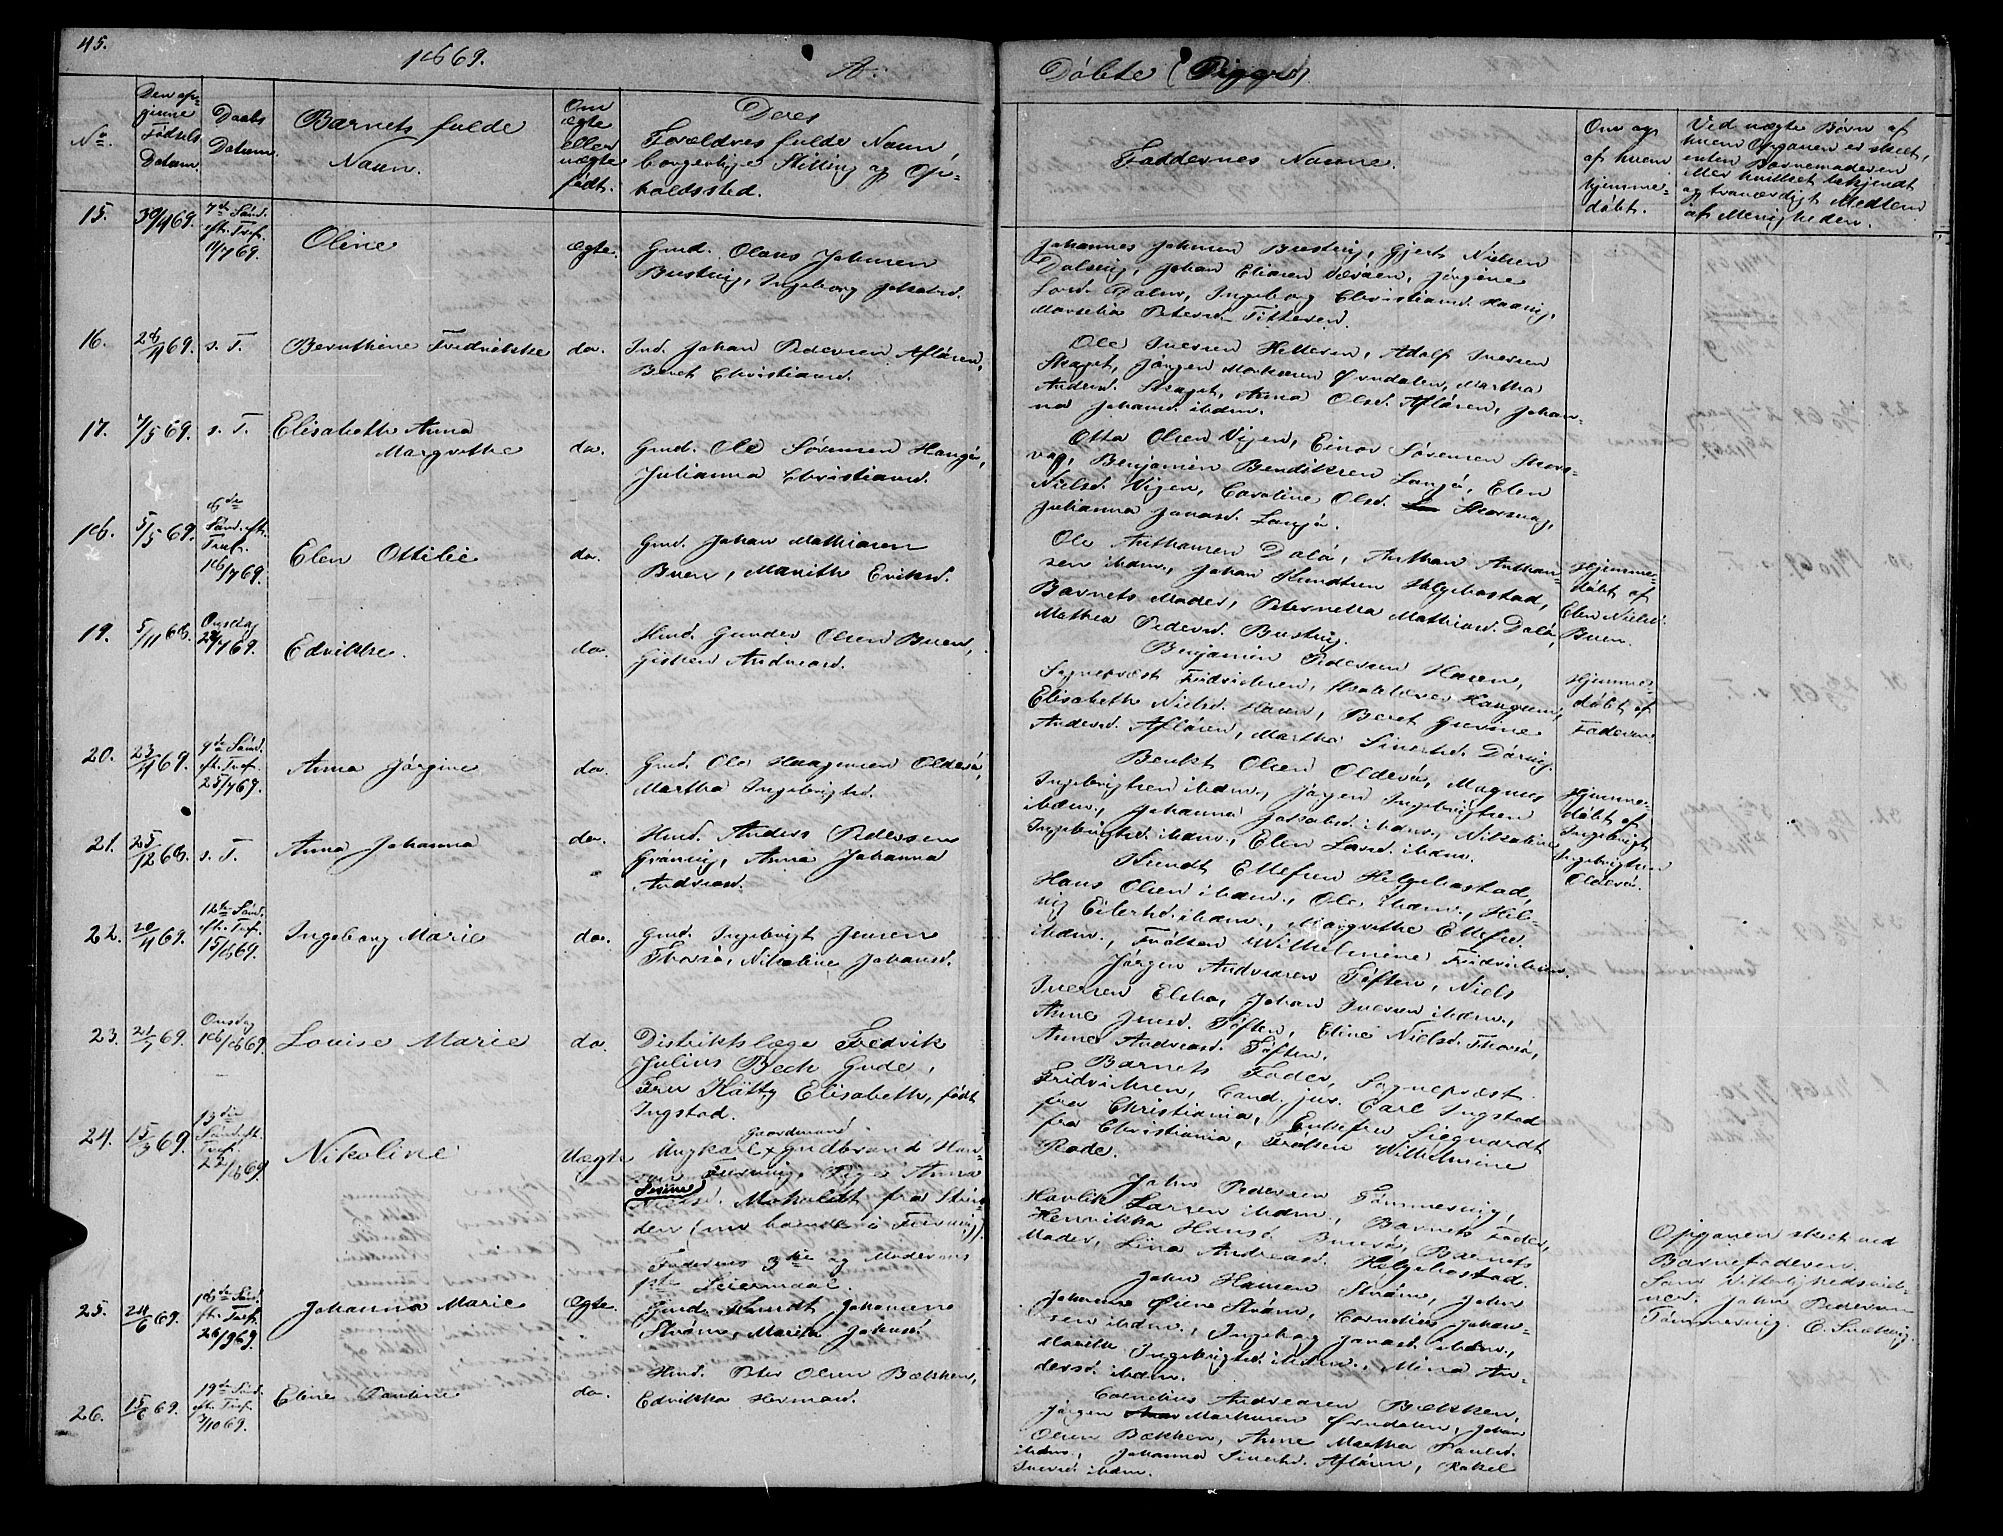 45.
1869.
A.
Døbte (Piger)
No.
Den op-
givne
Fødsels
Datum.
Daabs
Datum.
Barnets fulde
Navn.
Om
ægte
eller
uægte
født.
Deres
Forældres fulde Navn,
borgerlige Stilling og Op-
holdssted.
Faddernes Navne.
Om og
af hvem
hjemme-
døbt.
Ved uægte Børn af
hvem Opgaven er skeet,
enten Barnemoderen
eller hvilket bekjendt
og troværdigt Medlem
af Menigheden.
15.
30/4 69.
7de Sønd.
eft. Tref.
11/7 69.
Oline
ægte.
Gmd. Olaus Johnsen
Bustvig, Ingeborg Jakobsd.
Johannes Johnsen Bustvig, Gjert Nielsen
Dalsvig, Johan Eliasen Sørøen, Jørgine
Larsd. Dalsv, Ingeborg Christiansd. Hagvig,
Marselie Petersd. Titteren.
16.
28/4 69.
s. T.
Bernthine Fredrikke
do.
Ind. Johan Pedersen Afløren,
Beret Christiansd.
Ole Iversen Hitteren, Adolf Iversen
Skaget, Jørgen Markusen Ørndalen, Martha
Andersd. Skaget, Anna Olsd. Afløren, Johan-
na Johansd. ibdm.
17.
7/5 69.
s. T.
Elisabeth Anna
Margrethe
do.
Gmd. Ole Sørensen Hangø,
Julianna Christiansd.
Otto Olsen Vigen, Einar Sørensen Stors-
vag, Benjamin Bendiksen Langø, Elen
Nielsd. Wigen, Caroline Olsd. Storsvag,
Julianna Jonasd. Langø.
18.
5/5 69.
8de
Sønd. eft.
Tref.
18/7 69.
Elen Ottilie
do.
Gmd. Johan Mathiasen
Buen, Marith Eriksd.
Ole Anthonsen Dalø, Anthon Anthon-
sen ibdm, Johan Knudtsen Helgebostad,
Barnets Moder, Peternella Mathiasd. Dalø,
Mathea Pedersd. Bustvig.
Hjemme-
døbt af
Elen Nielsd.
Buen.
19.
5/11 68.
Onsdag
21/7 69.
Edvikke.
do.
Hmd. Gunder Olsen Buen,
Gisken Andreasd.
Benjamin Pedersen Hasen,
Sognepræst Fridrichsen, Skolelærer Haugum,
Elisabeth Nielsd. Hasen, Beret Grevine
Andersd. Afløren, Martha Sivertsd. Dørvig.
Hjemme-
døbt af
Faderen.
20.
23/4 69.
9de Sønd.
eft. Tref.
25/7 69.
Anna Jørgine
do.
Gmd. Ole Haagensen Oldervø,
Martha Ingebrigtsd.
Benkt Olsen Oldervø, Magnus
Ingebrigtsen ibdm., Jørgen Ingebrigtsen
ibdm., Johanna Jakobsd. ibdm., Nikoline
Ingebrigtsd. ibdm., Elen Larsd. ibdm.
Hjemme-
døbt af
Ingebrigt
Ingebrigtsen
Oldervø.
21.
25/12 68.
s. T.
Anna Johanna
do.
Hmd. Anders Pedersen
Granvig, Anna Johanna
Andreasd.
Knudt Ellefsen Helgebostad,
Hans Olsen ibdm., Ole ibdm., Hel-
vig Eilertsd. ibdm., Margrethe Ellefsd.
ibdm., Frøken Wilhelmine Fridrichsen.
22.
20/4 69.
12te Sønd.
eft. Tref.
15/8 69.
Ingeborg Marie
do.
Gmd. Ingebrigt Jensen
Thorsø, Nikoline Johansd.
Jørgen Andreasen Tøften, Niels
Iversen Elsha, Johan Iversen ibdm.,
Anne Jensd. Tøften, Eline Nielsd. Thorsø,
Anne Andreasd. Tøften.
23.
21/7 69.
Onsdag
18/8 69.
Louise Marie
do.
Distriktslæge Fredrik
Julius Bech Gude,
Fru Hätty Elisabeth, født
Ingstad.
Barnets Fader, Sognepræst
Fridrichsen, Cand. jur. Carl Ingstad
fra Christiania, Enkefru Siegwardt
fra Christiania, Frøken Wilhelmine
Rode.
24.
15/3 69.
13de
Sønd. eft.
Tref.
22/8 69.
Nikoline
Uægte
Gaardmand
Ungkarl Gudbrand Han-
sen Furuvig, Pige Anna
Sivine
Nielsd. Moholdt fra Strin-
den (nu boende i Furuvig).
Faderens 3die og Moderens
1ste Leiermaal.
John Pedersen Tømmervig,
Hartvik Larsen ibdm., Barnets Fader,
Henrikka Hansd. Burø, Barnets
Moder, Lina Andreasd. Helgebostad.
Opgaven skeet ved
Barnefaderen.
Som Vitterlighedsvid-
ner: John Pedersen
Tømmervig. E. Snekvig.
25.
24/6 69.
18de Sønd.
eft. Tref.
26/9 69.
Johanna Marie
Ægte.
Gmd. Knudt Johansen
Strøm, Marith Johnsd.
John Hansen Strøm, John
Johnsen Øien Strøm, Cornelius Johan-
sen ibdm., Ingeborg Jonasd. ibdm.,
Marith Ingebrigtsd. ibdm., Mina An-
dersd. ibdm.
26.
15/6 69.
19de Sønd.
eft. Tref.
3/10 69.
Eline Pauline
do.
Hmd. Peter Olsen Bækken,
Edvikka Hermansd.
Cornelius Andreasen Bækken,
Jørgen Markusen Ørndalen, Johan
Olsen Bækken, Anne Martha Paulsd.
ibdm., Johanna Sivertsd. Afløren, Rakel
Iversd. ibdm.